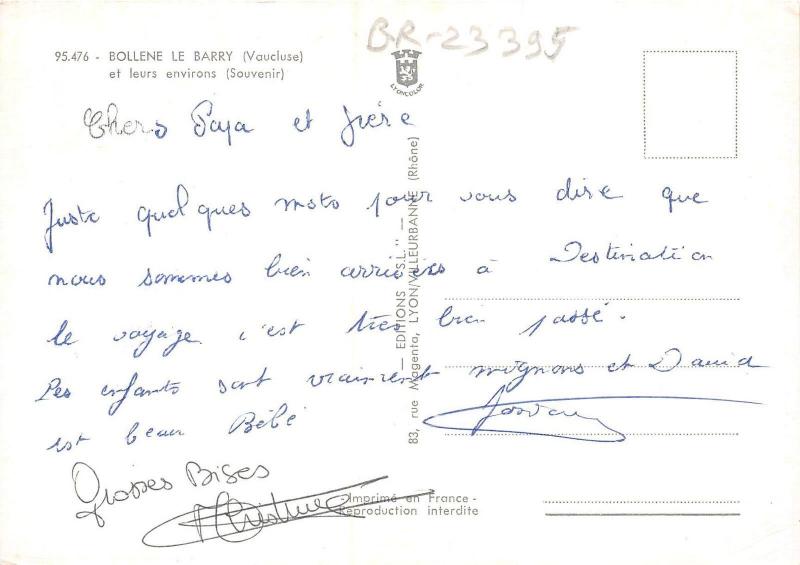 BR-23395
95.476 - BOLLENE LE BARRY (Vaucluse)
et leurs environs (Souvenir)
LYONCOLOR
Chers Papa et frère
Juste quelques mots pour vous dire que
nous sommes bien arrivées à Destination
le voyage c'est très bien passé.
Les enfants sont vraiment mignons et David
est beau Bébé
Grosses Bises
Christine
83, rue Magenta, LYON/VILLEURBANNE (Rhône)
— EDITIONS "S.L." —
Imprimé en France -
Reproduction interdite